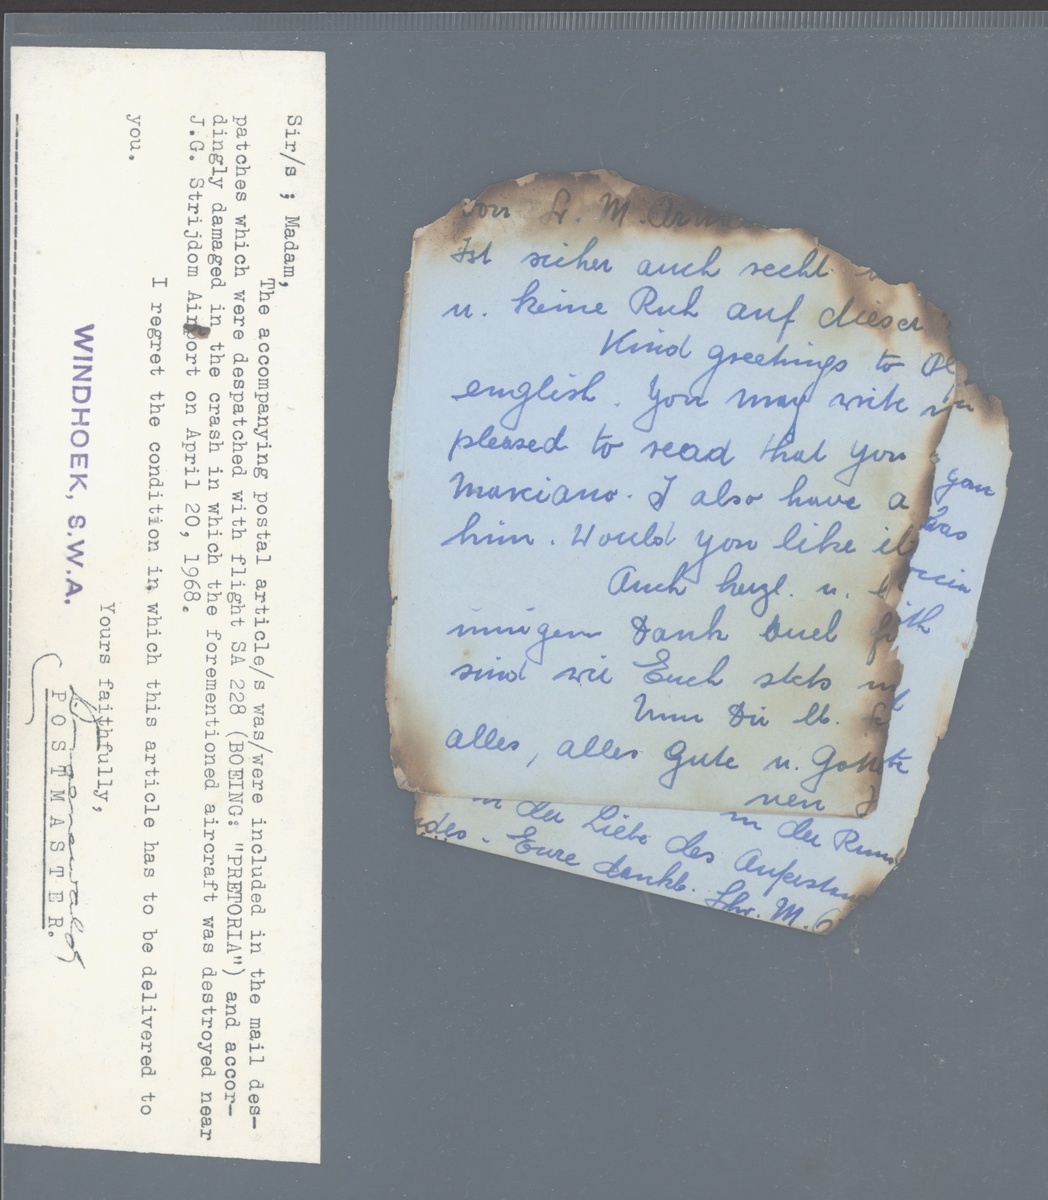 Sir/s ; Madam,
The accompanying postal article/s was/were included in the mail des-
patches which were despatched with flight SA 228 (BOEING: "PRETORIA") and accor-
dingly damaged in the crash in which the forementioned aircraft was destroyed near
J.G. Strijdom Airport on April 20, 1968.
I regret the condition in which this article has to be delivered to
you.
Yours faithfully,
WINDHOEK, S.W.A.
POSTMASTER.
von Sr. M.
Ist sicher auch recht
u. keine Ruh auf dieser
Kind greetings to
english. You may write in
pleased to read that you
Marciano. I also have a
him. Would you like it
Auch herzl. u.
innigen Dank Euch für
sind wir Euch stets
Nun Dir lb.
alles, alles Gute u.
nen
you
was
ith
in der Run
in der Liebe des Auferstan
des. Eure dankb. Schw. M.